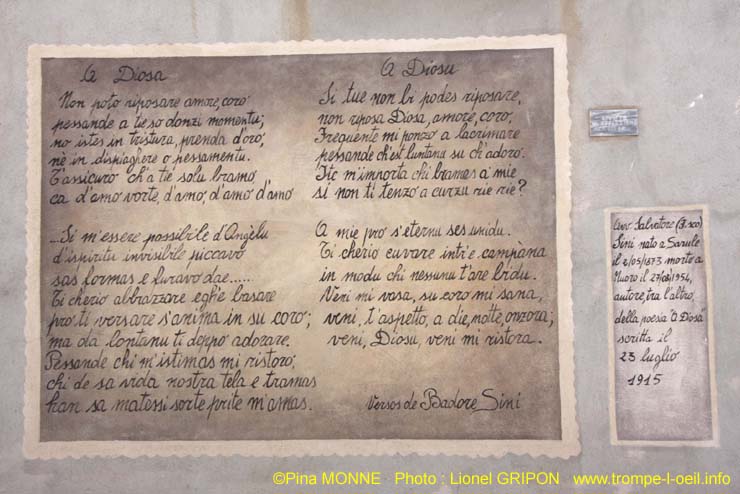 A Diosa
Non poto riposare amore, coro
pessande a tie so donzi momentu;
no istes in tristura, prenda d'oro,
nè in dispiaghere o pessamentu.
T'assicuro ch'a tie solu bramo
ca d'amo vorte, d'amo, d'amo d'amo
...Sè m'essere possibile d'Angelu
d'ispiritu invisibile piccavo
sas formas e furavo dae......
Ti cherio abbrazzare egh'e basare
pro ti versare s'anima in su coro;
ma da lontanu ti deppo adorare.
Pessande chi m'istimas mi ristoro,
chi de sa vida nostra tela e tramas
han sa matessi sorte prite m'amas.
A Diosu
Si tue non bi podes riposare,
non riposa Diosa, amore, coro,
Frequente mi ponzo a lacrimare
pessande ch'est luntanu su ch'adoro.
Ite m'importa chi bramas a mie
si non ti tenzo a curzu rie rie?
A mie pro s'eternu ses unidu.
Ti cherio cuvare inti'e campàna
in modu chi nessunu t'are bridu.
Veni mi vasa, su coro mi sana,
veni, t'aspetto, a die, notte, onzora;
veni, Diosu, veni mi ristora.
Versos de Badore Sini
Avv. Salvatore (B.sco)
Sini nato a Sarule
il 2/05/1873 morto a
Nuoro il 27/08/1954,
autore, tra l'altro,
della poesia "A Diosa"
scritta il
23 luglio
1915
©Pina MONNE Photo : Lionel GRIPON www.trompe-l-oeil.info